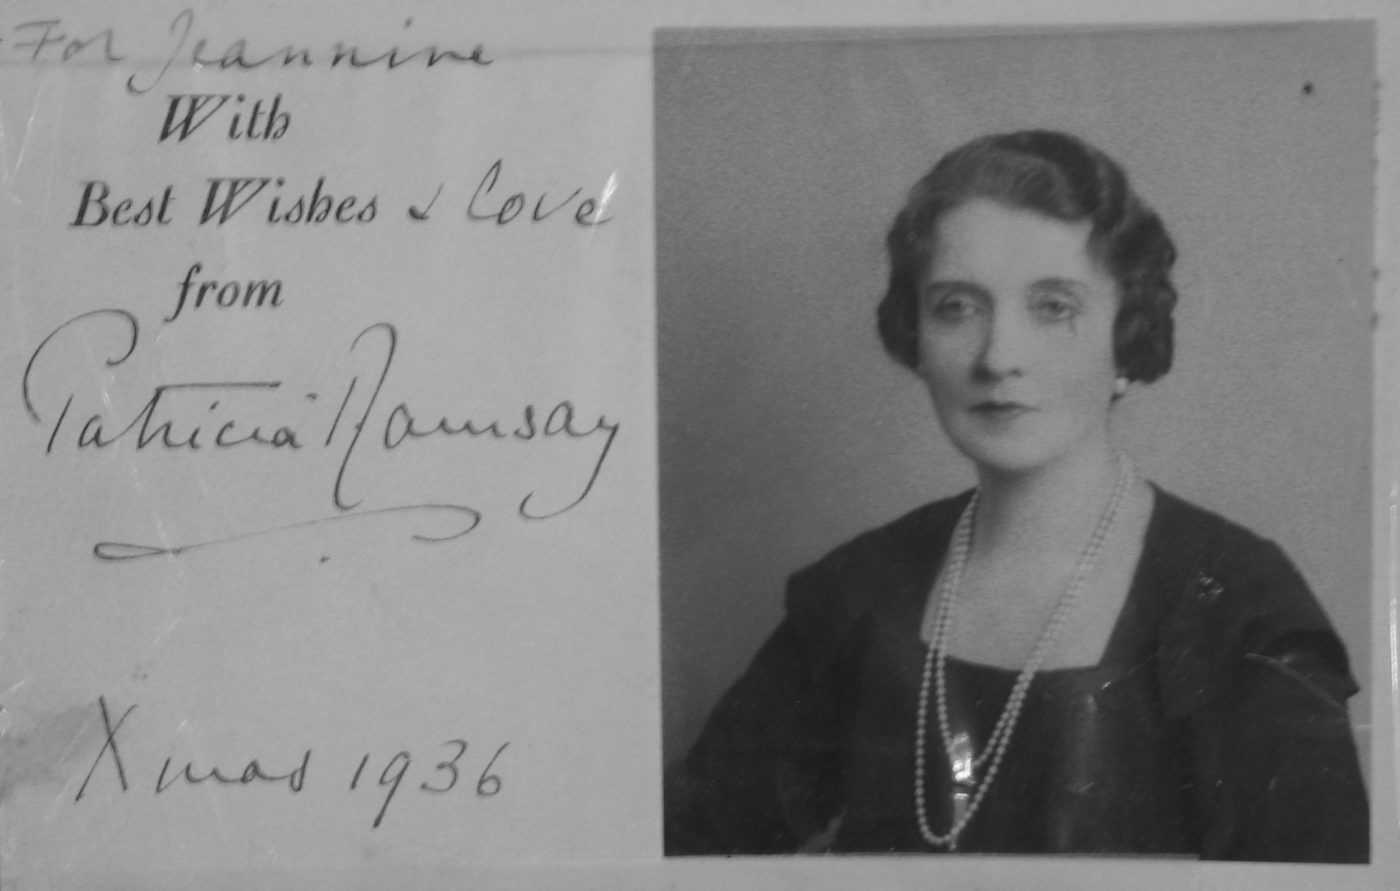 For Jeannine
With
Best Wishes & love
from
Patricia Ramsay
Xmas 1936